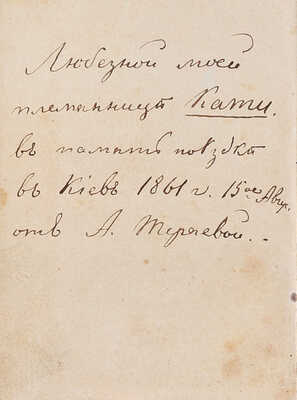 Любезной моей
племянницѣ Кати.
въ память поѣздки
въ Кіевъ 1861 г. 15ое Авгу.
отъ А.